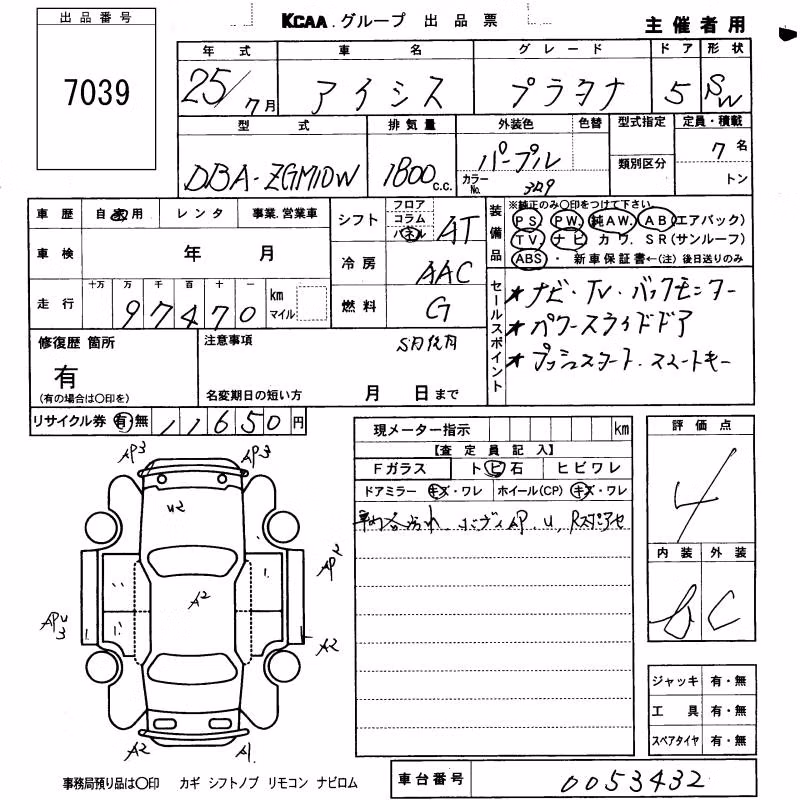 出品番号
7039
KCAA.グループ 出品票
主催者用
年式 車名 グレード ドア 形状
25/7月 アイシス プラタナ 5 SW
型式 排気量 外装色 色替 型式指定 定員・積載
DBA-ZGM10W 1800c.c. パープル 7名
カラーNo. 3Q9 類別区分 トン
車歴 自家用 レンタ 事業.営業車
車検 年 月
走行 十万 万 千 百 十 一
97470 km マイル
シフト フロア コラム パネル AT
冷房 AAC
燃料 G
装備品 ※純正のみ〇印をつけて下さい
PS PW 純AW. AB(エアバック)
TV. ナビ カワ. SR(サンルーフ)
ABS ・ 新車保証書←(注)後日送りのみ
セールスポイント
★ナビ・TV・バックモニター
★パワースライドドア
★プッシュスタート・スマートキー
修復歴 箇所
有
(有の場合は〇印を)
注意事項
名変期日の短い方 月 日まで
リサイクル券 有 無 11650円
現メーター指示 km
【査定員記入】
Fガラス トビ石 ヒビワレ
ドアミラー キズ・ワレ ホイール(CP) キズ・ワレ
評価点
4
内装 外装
B C
AP3 AP3
U2
A2
AP2
APU3
A2
A2 A1
ジャッキ 有・無
工具 有・無
スペアタイヤ 有・無
事務局預り品は〇印 カギ シフトノブ リモコン ナビロム
車台番号 0053432